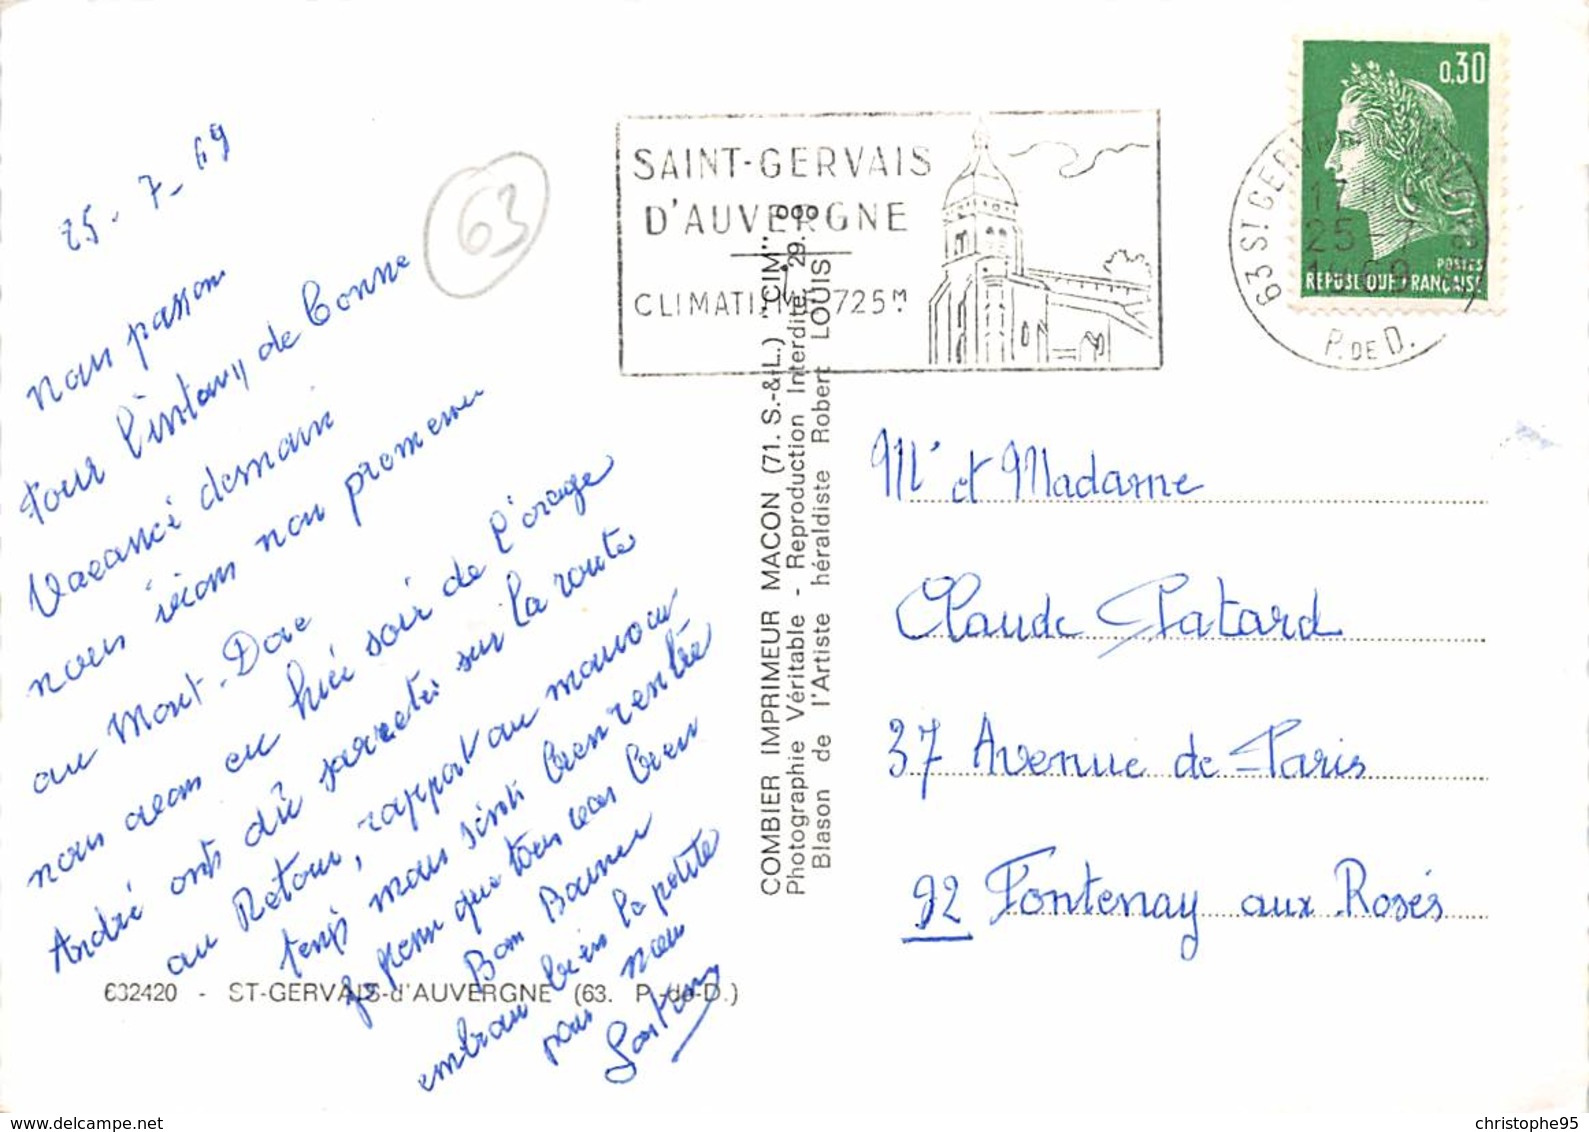 25-7-69
63
nous passon
pour l'instant de bonne
Vacance demain
nous irions nous promener
au Mont-Dore
nous avons eu hier soir de l'orage
André ont dû sarreter sur la route
au Retour, rapport au mauvais
temps mais sinti bien rentré
Je pense que tous bien
Bon Baiser
embrasse bien la petite
pour nous
SAINT-GERVAIS
D'AUVERGNE
725M
0,30
POSTES
REPUBLIQUE FRANÇAISE
63 ST GERVAIS D'AUVERGNE
17H
25-7
1969
P. DE D.
COMBIER IMPRIMEUR MACON (71. S.-&-L.) "CIM"
Photographie Véritable - Reproduction Interdite
Blason de l'Artiste héraldiste Robert LOUIS
Mr et Madame
Claude Patard
37 Avenue de Paris
92 Fontenay aux Rosés
632420 - ST-GERVAIS-d'AUVERGNE (63. P.-de-D.)
christophe95